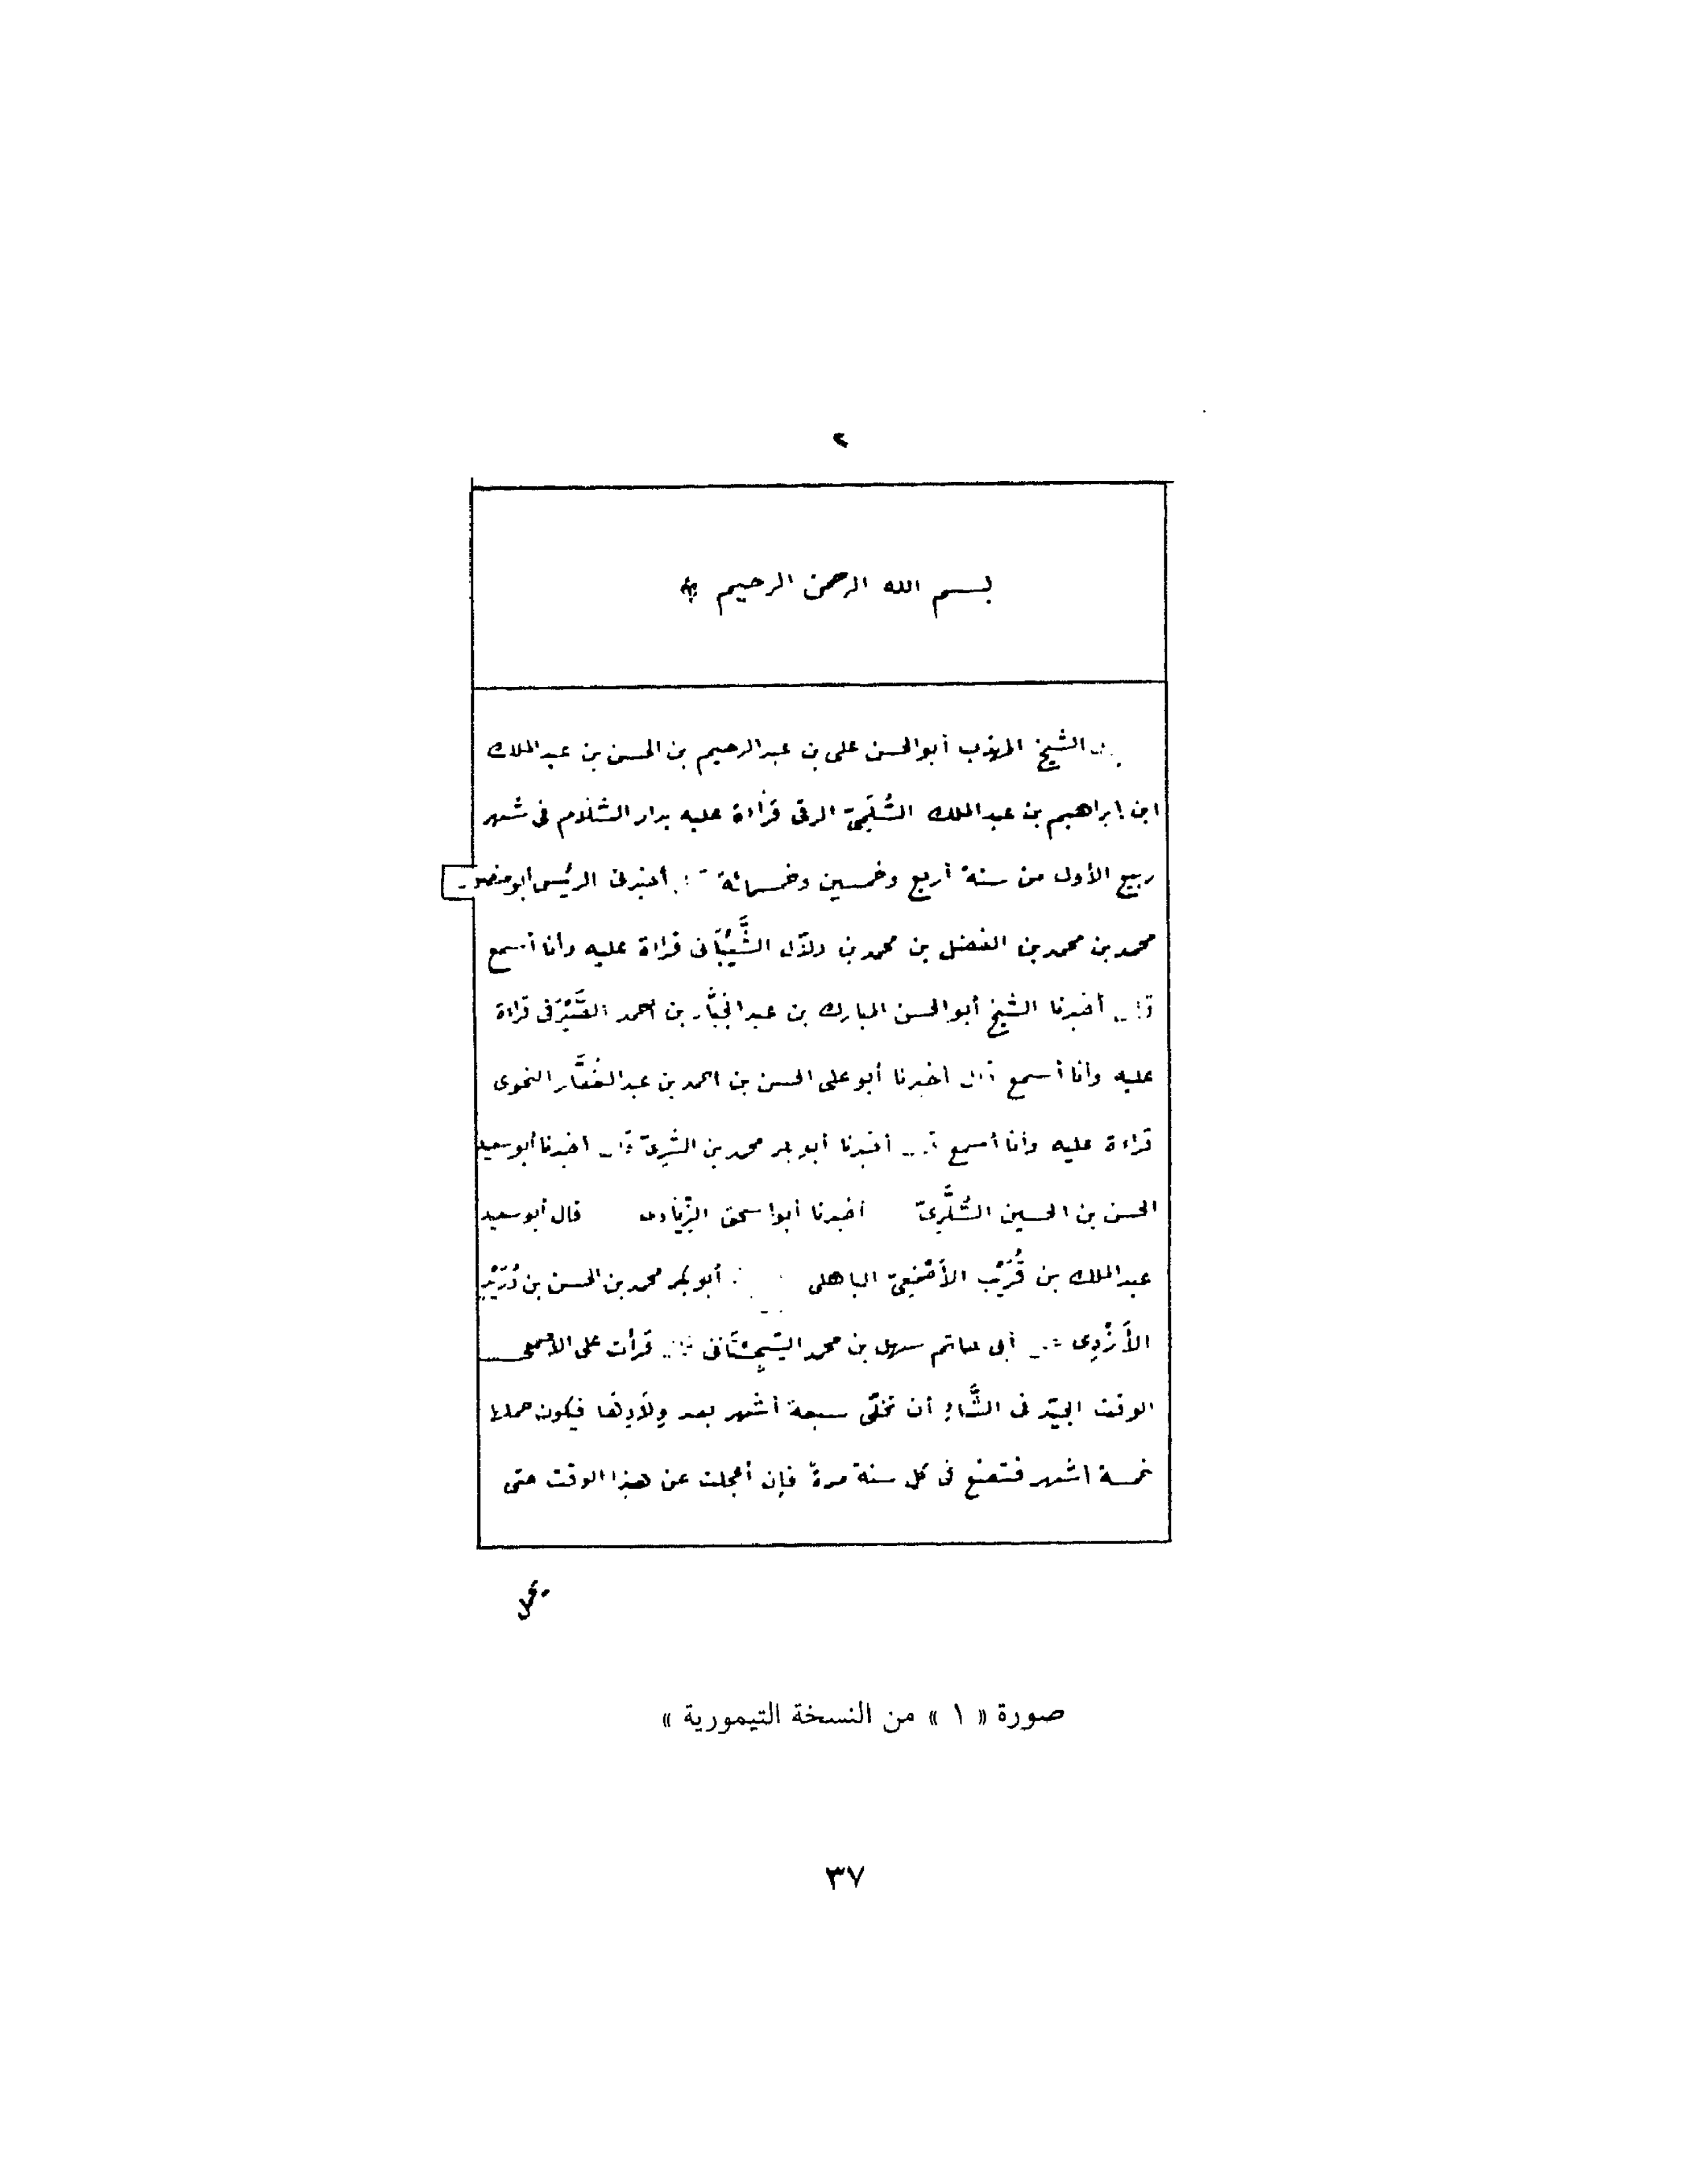 ٢
بسم الله الرحمن الرحيم
الشيخ المهذب أبو الحسن على بن عبد الرحيم بن الحسن بن عبد الملك
ابن ابراهيم بن عبد الملك السُّلَمِىّ الرقى قراءة عليه بدار السَّلام فى شهر
ربيع الأول من سنة أربع وخمسين وخمسمائة أخبرنى الرئيس أبو منصور
محمد بن محمد بن الفضل بن محمد بن دلال الشَّيْبَانى قراءة عليه وأنا أسمع
قال أخبرنا الشيخ أبو الحسن المبارك بن عبد الجَبَّار بن أحمد الصَّيْرَفى قراءة
عليه وأنا أسمع قال اخبرنا أبو على الحسن بن احمد بن عبد الغَفَّار النحوى
قراءة عليه وأنا أسمع أخبرنا أبو بكر محمد بن السَّرِىّ قال اخبرنا أبو سعيد
الحسن بن الحسين السُّكَّرِىّ أخبرنا أبو اسحق الزِّيَادى قال أبو سعيد
عبد الملك بن قُرَيْب الأَصْمَعِىّ الباهلى أبو بكر محمد بن الحسن بن دُرَيْدٍ
الأَزْدِى أبى حاتم سهل بن محمد السِّجِسْتَانى قرأت على الأصمعى
الوقت الجيّد فى الشَّاءِ أن تخلّى سبعة أشهر بعد وِلَادِهَا فيكون حملها
خمسة اشهر فتضع فى كل سنة مرة فإن أعجلت عن هذا الوقت حتى
صورة « ١ » من النسخة التيمورية »
٣٧